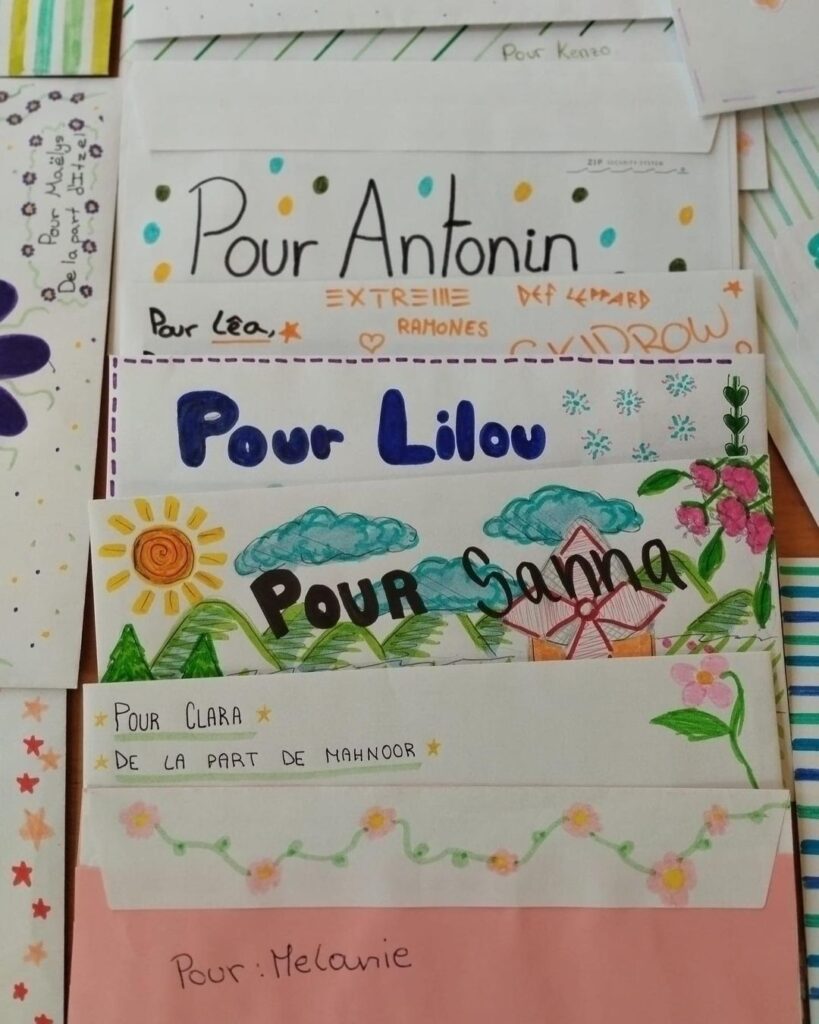 Pour Kenzo
Pour Maëlys
De la part d'Itzel
ZIP SECURITY SYSTEM
Pour Antonin
EXTREME DEF LEPPARD
Pour Lêa, RAMONES
SKIDROW
Pour Lilou
POUR Sanna
POUR CLARA
DE LA PART DE MAHNOOR
Pour : Melanie